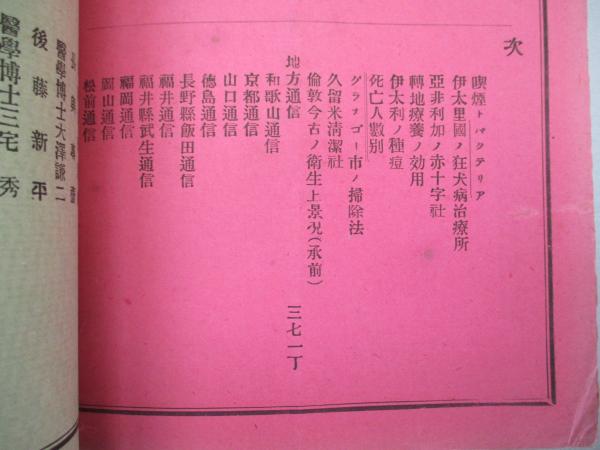 次
喫煙トバクテリア
伊太里國ノ狂犬病治療所
亞非利加ノ赤十字社
轉地療養ノ効用
伊太利ノ種痘
死亡人數別
グラスゴー市ノ掃除法
久留米淸潔社
倫敦今古ノ衛生上景况(承前)
地方通信 三七一丁
和歌山通信
京都通信
山口通信
德島通信
長野縣飯田通信
福井通信
福井縣武生通信
福岡通信
岡山通信
松前通信
醫學博士大澤謙二
後藤新平
醫學博士三宅秀